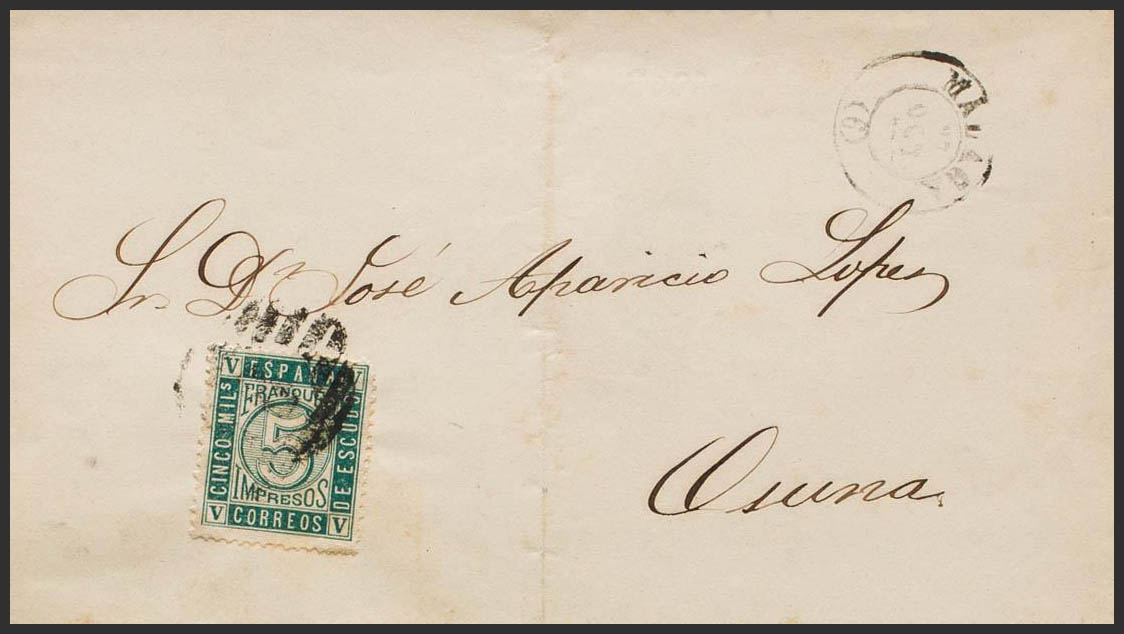 MALAGA
(9)
Sr. Dn. José Aparicio Lopez
Osuna.
V ESPAÑA V
FRANQUEO
CINCO MILS
5
DE ESCUDO
IMPRESOS
V CORREOS V